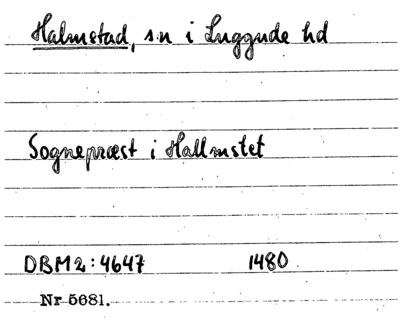 Halmstad, sn i Luggude hd
Sognepræst i Hallmstet
DBM2:4647 1480
Nr 5681.